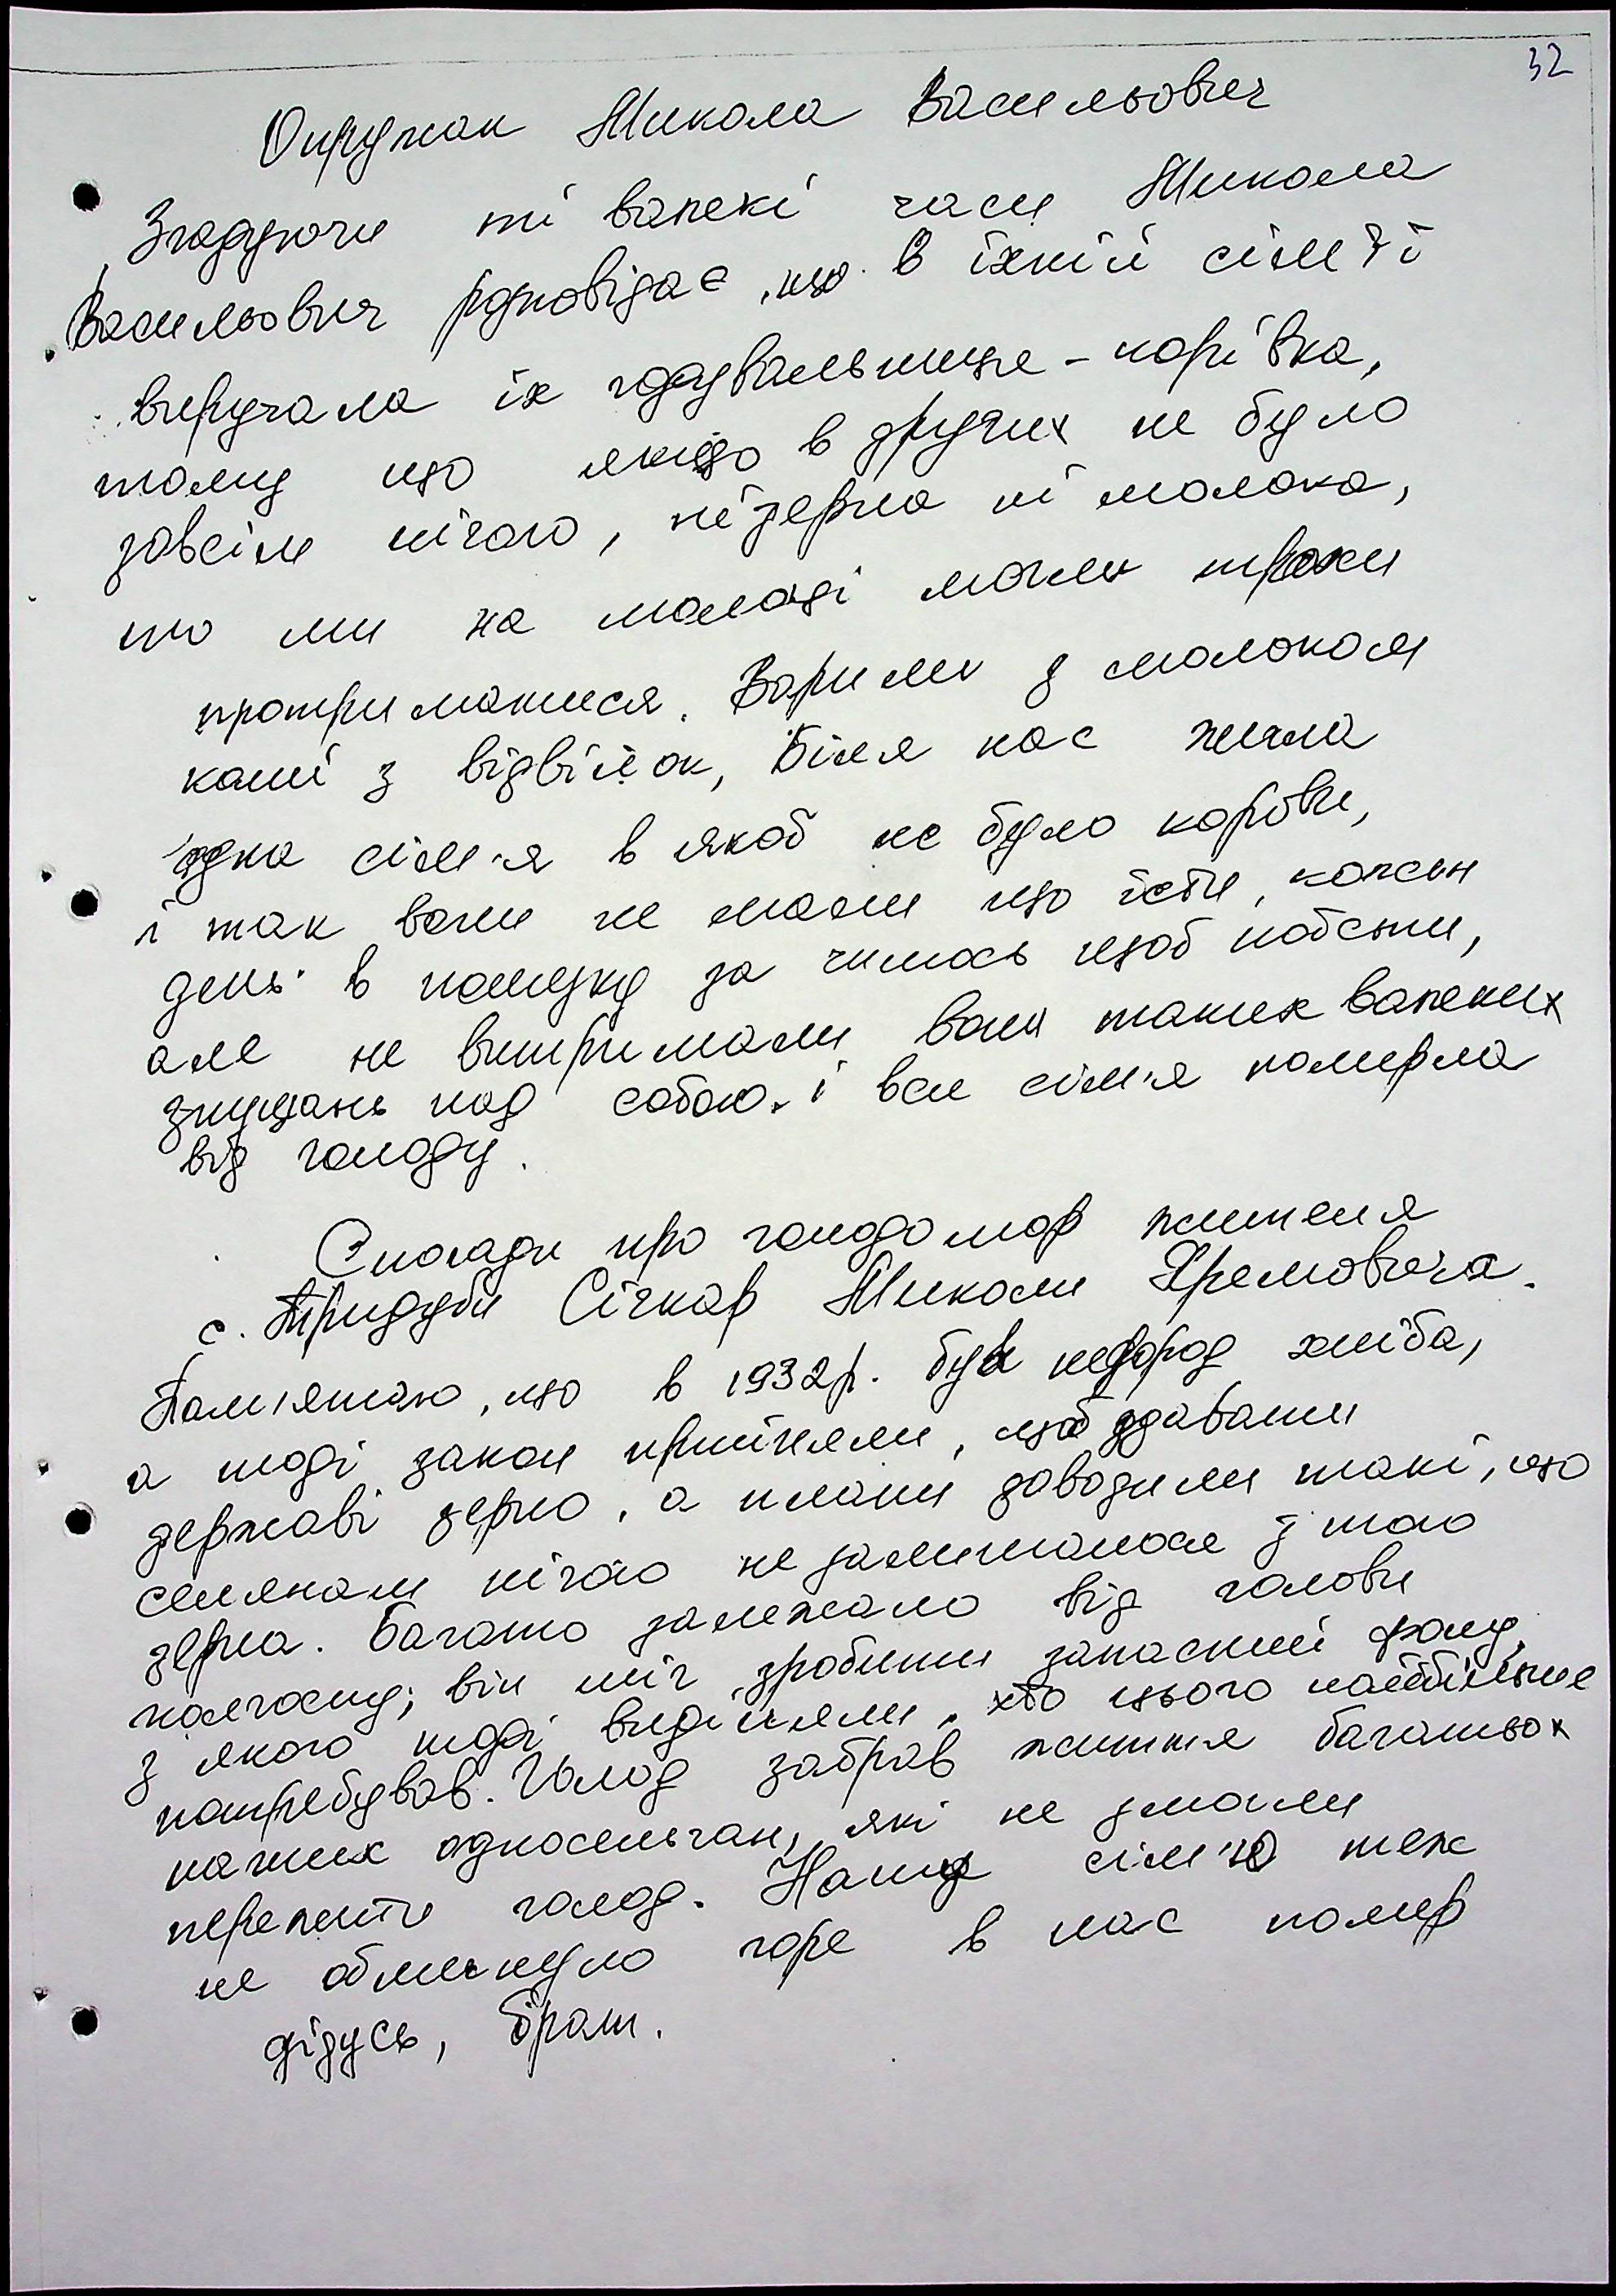 32
Окружак Микола Васильович
Згадуючи ті важкі часи Микола
Васильович розповідає, що в їхній сім'ї
виручала їх годувальниця - корівка,
тому що якщо в других не було
зовсім нічого, ні зерна ні молока,
то ми на молоці могли трохи
протриматися. Варили з молоком
каші з відвійок, Біля нас жила
одна сім'я в якоб не було корови,
і так вони не мали що їсти, кожен
день в пошуку за чимось щоб поїсти,
але не витримали вони таких важких
знущань над собою. і вся сім'я померла
від голоду.
Спогади про голодомор жителя
с. Тридуби Січкар Миколи Яремовича.
Пам'ятаю, що в 1932р. був недород хліба,
а тоді закон прийняли, щоб здавати
державі зерно, а плани доводили такі, що
селянам нічого не залишалося з того
зерна. Багато залежало від голови
колгоспу; він міг зробити запасний фонд,
з якого тоді виділяли, хто цього найбільше
потребував. Голод забрав життя багатьох
наших односельчан, які не змогли
пережити голод. Нашу сім'ю теж
не обминуло горе в нас помер
дідусь, брат.